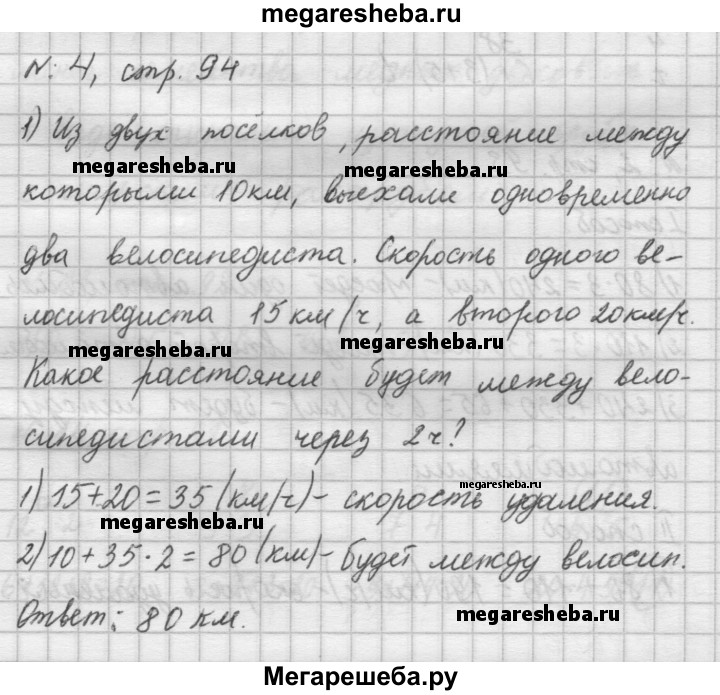 megaresheba.ru
№ 4, стр. 94
1) Из двух посёлков, расстояние между
megaresheba.ru megaresheba.ru
которыми 10км, выехали одновременно
два велосипедиста. Скорость одного ве-
лосипедиста 15 км/ч, а второго 20км/ч.
megaresheba.ru megaresheba.ru
Какое расстояние будет между вело-
сипедистами через 2ч?
megaresheba.ru
1) 15+20=35 (км/ч) - скорость удаления.
megaresheba.ru
2) 10+35·2=80 (км) - будет между велосип.
Ответ: 80 км.
megaresheba.ru
Мегарешеба.ру